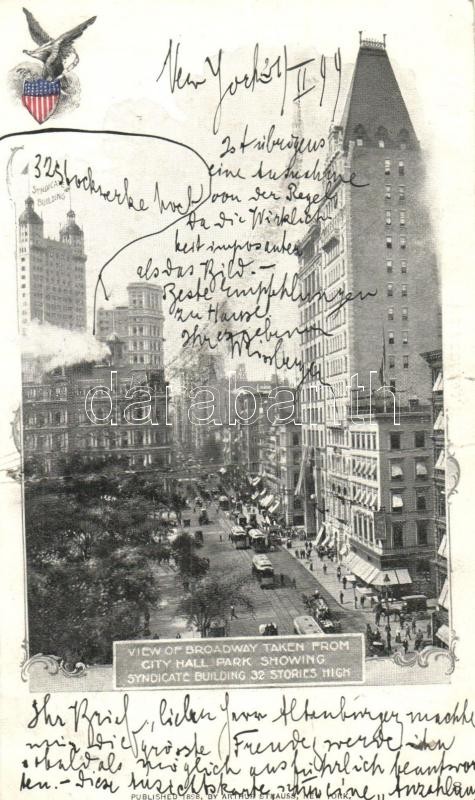 New York 4/II 99
32 Stockwerke hoch
SYNDICATE
BUILDING
Ist übrigens
eine Ausnahme
von der Regel
Da die Wirklich
keit imposanter
als das Bild.-
Beste Empfehlungen
zu Hause
Ihr ergebener
darabanth
VIEW OF BROADWAY TAKEN FROM
CITY HALL PARK SHOWING
SYNDICATE BUILDING 32 STORIES HIGH
Ihr Brief, lieber Herr Altenburger machte
mir die grösste Freude, werde ihn
sobald als möglich ausführlich beantwor
ten.- Diese Ansichtskarte ist eine "Anzahlung
PUBLISHED 1898, BY ARTHUR STRAUSS, YORK